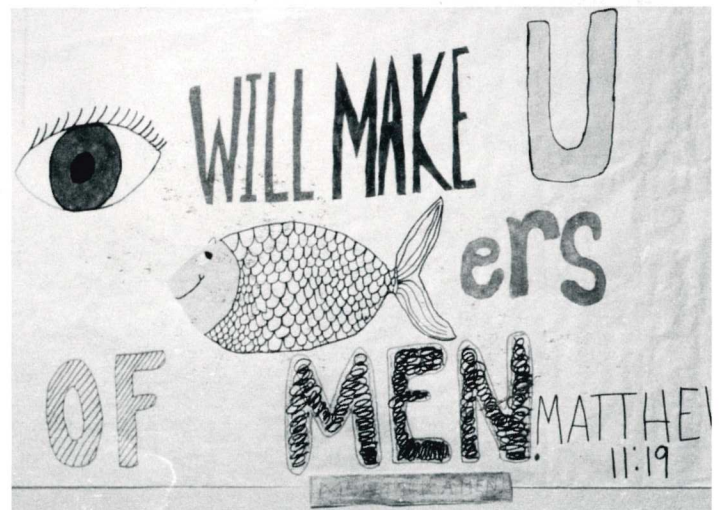 WILL MAKE U
ers
OF MEN.
MATTHEW
11:19